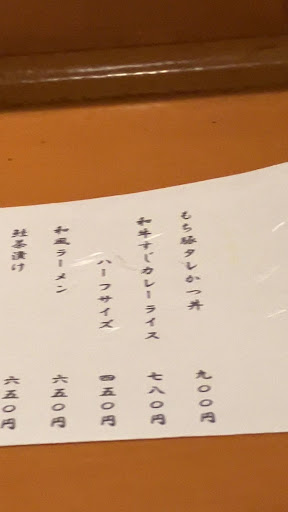 もち豚タレかつ丼 九〇〇円
和牛すじカレーライス 七八〇円
ハーフサイズ 四五〇円
和風ラーメン 六五〇円
鮭茶漬け 六五〇円